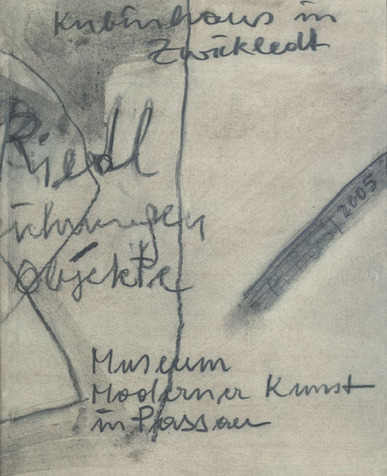 Kubinhaus in
Zwickledt
Riedl
ichnungen
Objekte
2005
Museum
Moderner Kunst
in Passau